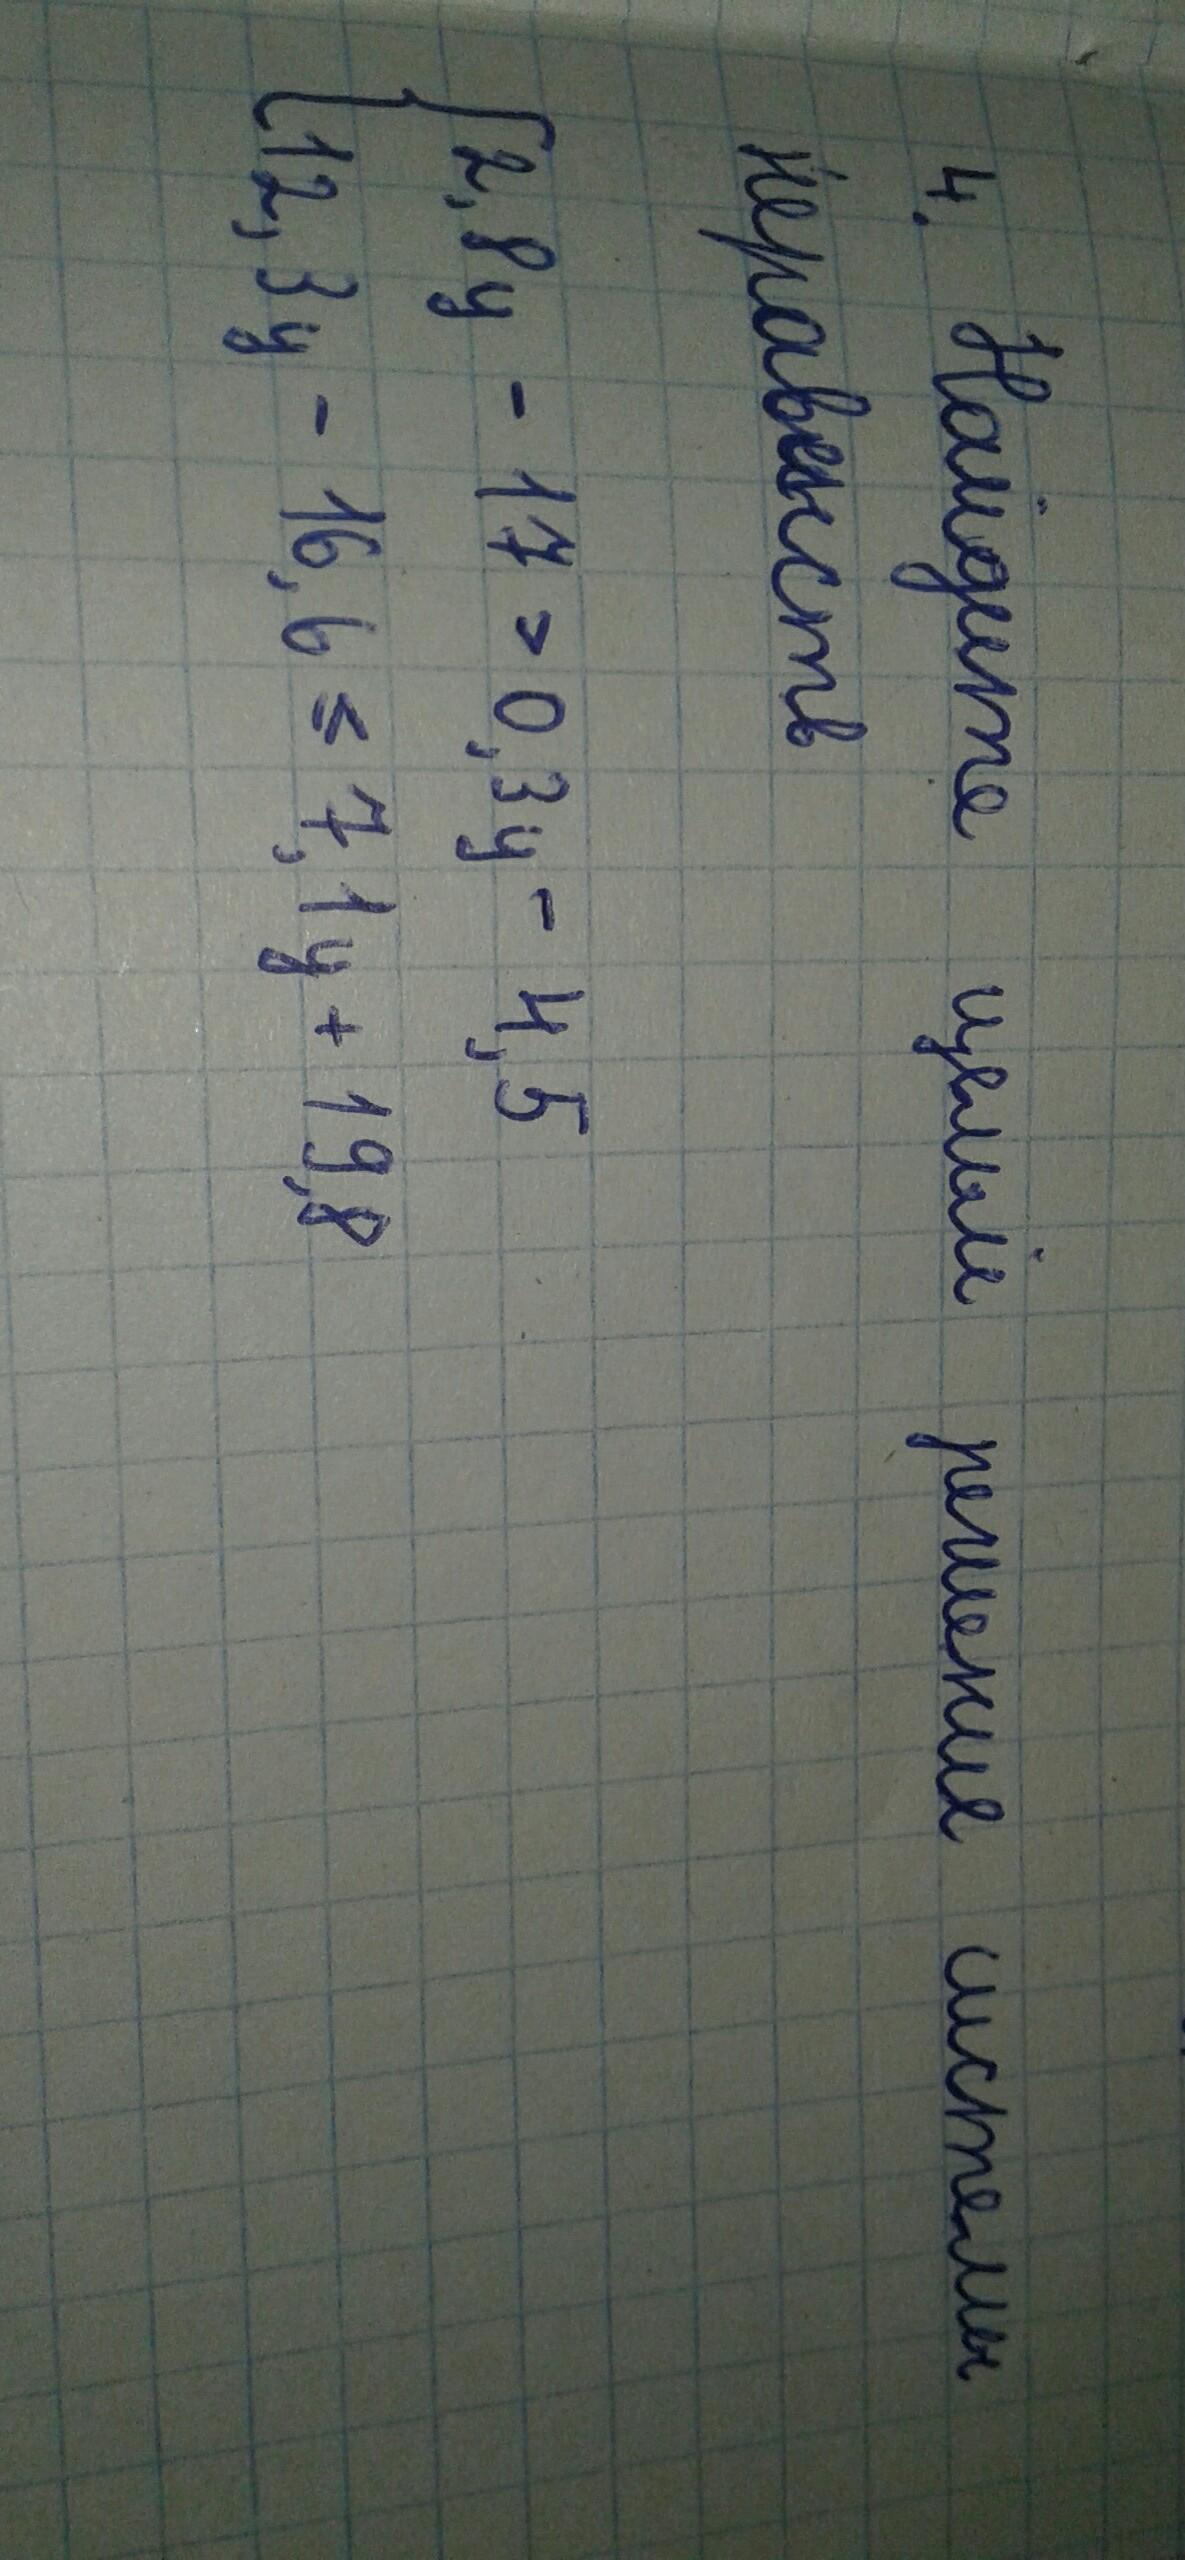 4. Найдите целые решения системы
неравенств
{2,8y - 17 > 0,3y - 4,5
12,3y - 16,6 ≤ 7,1y + 19,8